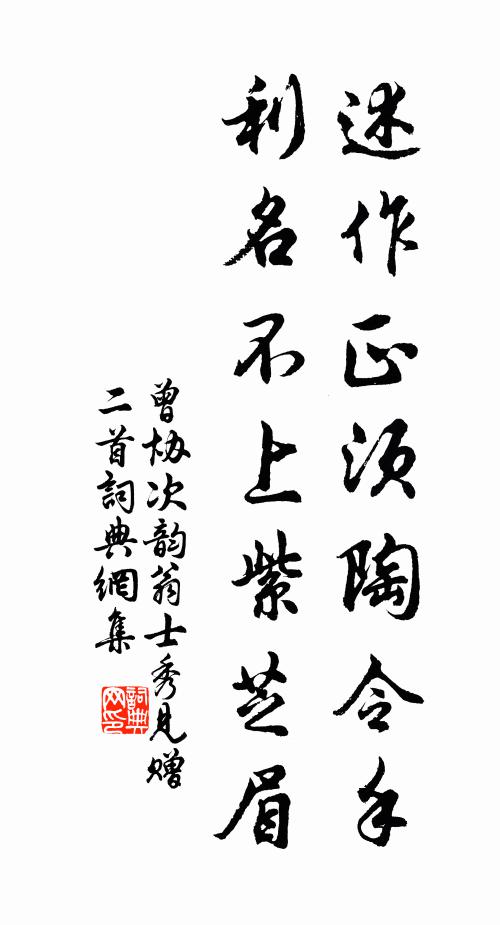 述作正须陶令手
利名不上紫芝眉
曾协次韵翁士秀见赠
二首詞典網集
詞典网印